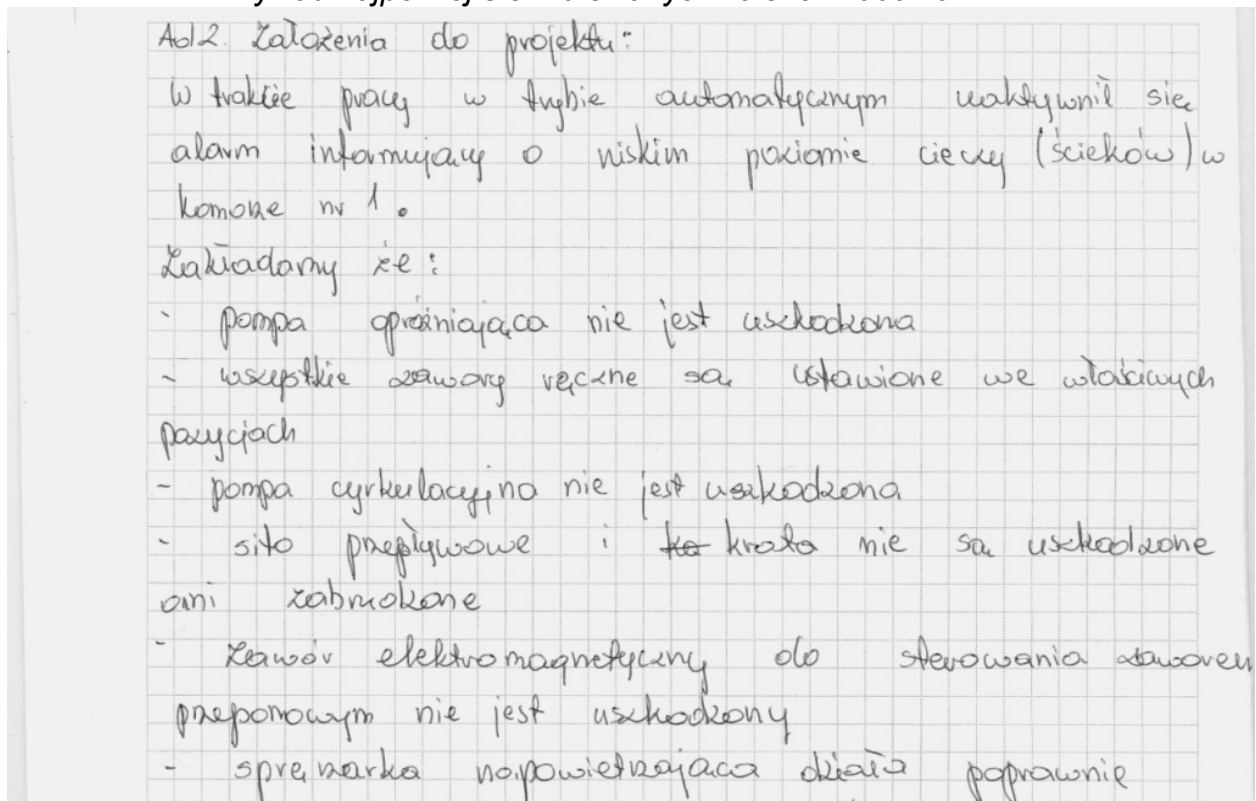 Ad2. Założenia do projektu:
W trakcie pracy w trybie automatycznym uaktywnił się
alarm informujący o niskim poziomie cieczy (ścieków) w
komorze nr 1.
Zakładamy że:
- pompa opróżniająca nie jest uszkodzona
- wszystkie zawory ręczne są ustawione we właściwych
pozycjach
- pompa cyrkulacyjna nie jest uszkodzona
- sito przepływowe i krata nie są uszkodzone
ani zabrudzone
- zawór elektromagnetyczny do sterowania zaworem
przeponowym nie jest uszkodzony
- sprężarka napowietrzająca działa poprawnie